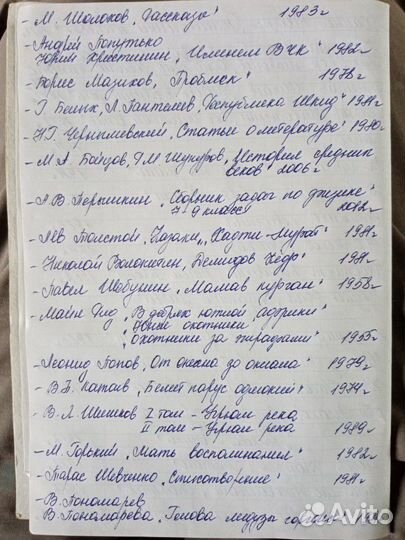 - М. Шолохов „Рассказы" 1983 г
- Андрей Попутько
Юрий Христинин „Именем ВЧК" 1982 г
- Борис Мазихов 1978 г
- Г. Белых, Л. Пантелеев „Республика Шкид"
- Н.Г. Чернышевский „Статьи о литературе" 1980 г
- М.А. Бойцов, Р.М Шукуров „История средних
веков" 2006 г
- А.В Перышкин „Сборник задач по физике
7-9 класс"
- Лев Толстой „Казаки", „Хаджи-Мурат" 1981 г
- Николай Волокитин „Демидов кедр" 1981 г
- Павел Шебунин „Мамаев курган" 1958 г
- Майн Рид „В дебрях южной африки"
охотники"
„охотники за жирафами" 1955 г
- Леонид Попов „От океана до океана" 1979 г
- В.П. Катаев „Белеет парус одинокий" 1974 г
- В.Я. Шишков I том - Угрюм река
II том - Угрюм река 1989 г
- М. Горький „Мать воспоминания" 1982 г
- Тарас Шевченко „Стихотворение" 1981 г
- В. Пономарев
В. Пономарева „Голова медузы
Avito